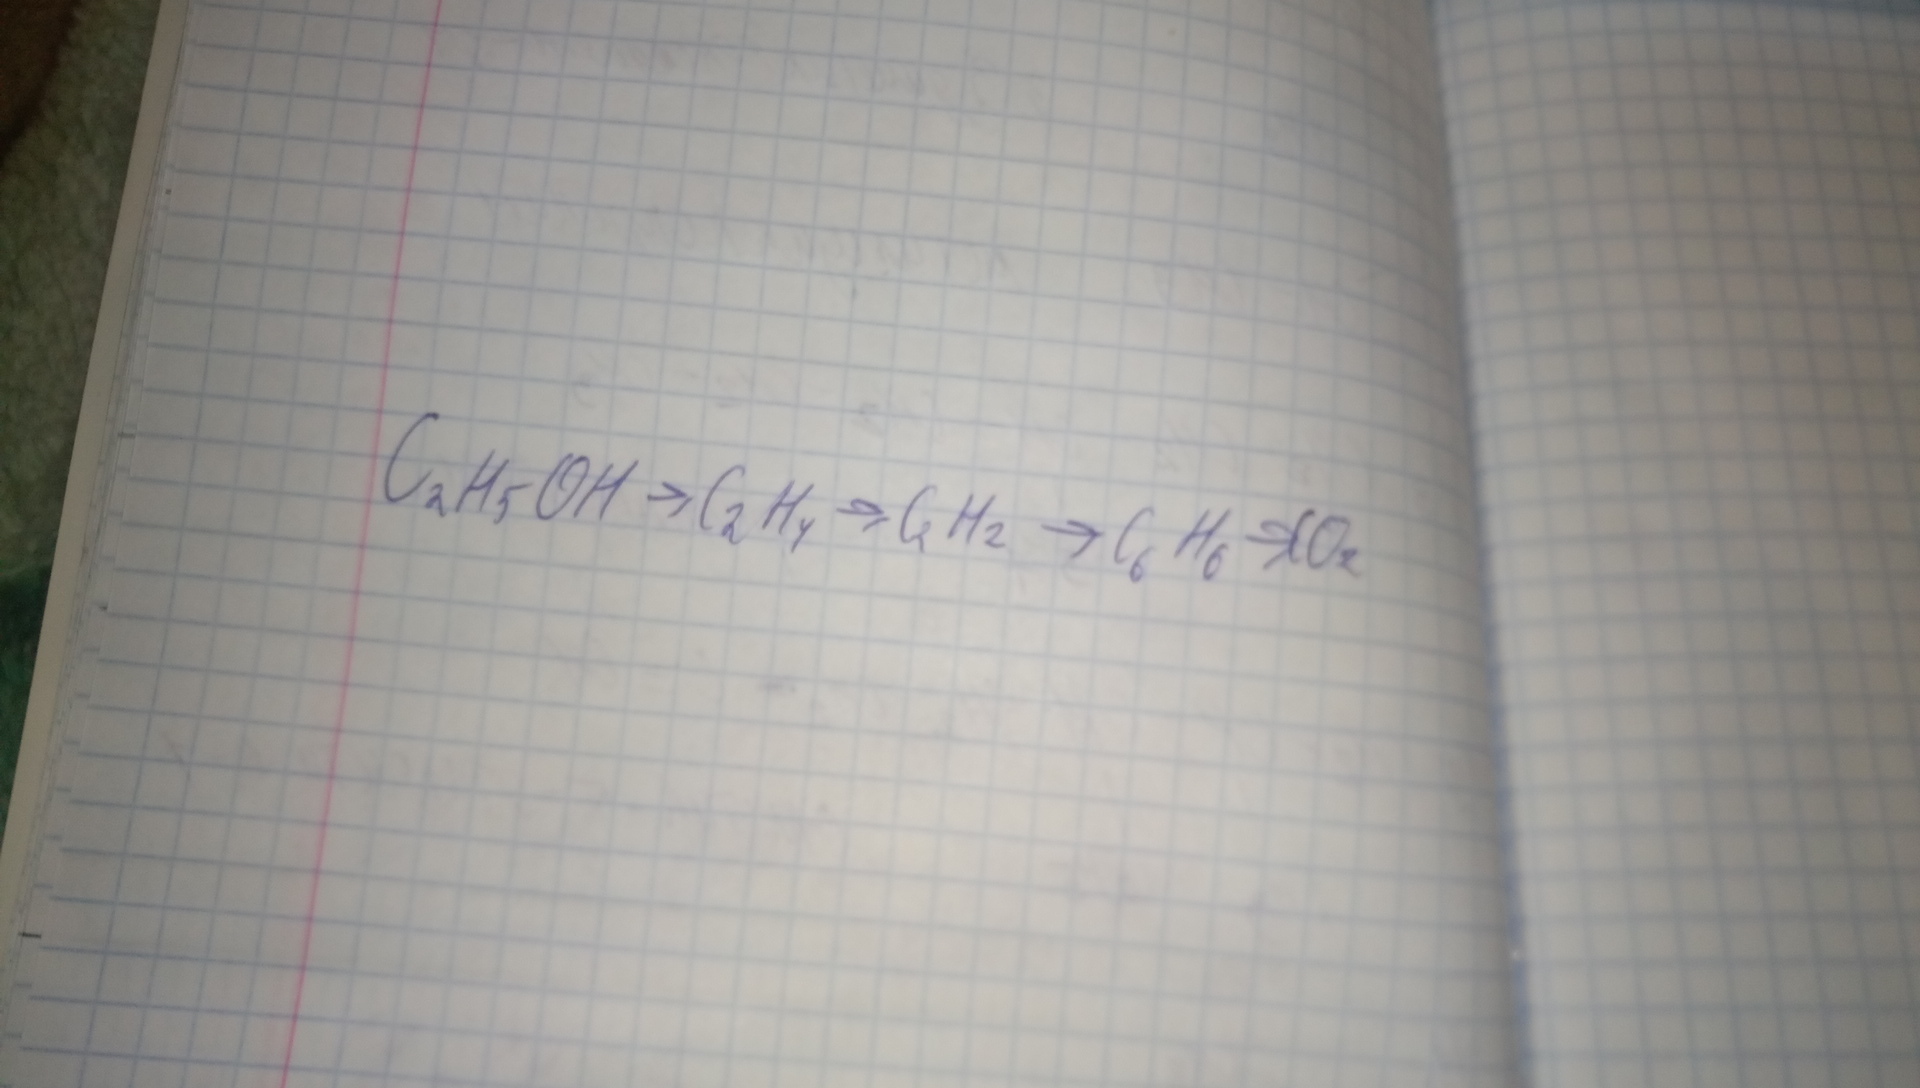 C₂H₅OH → C₂H₄ → C₂H₂ → C₆H₆ → CO₂